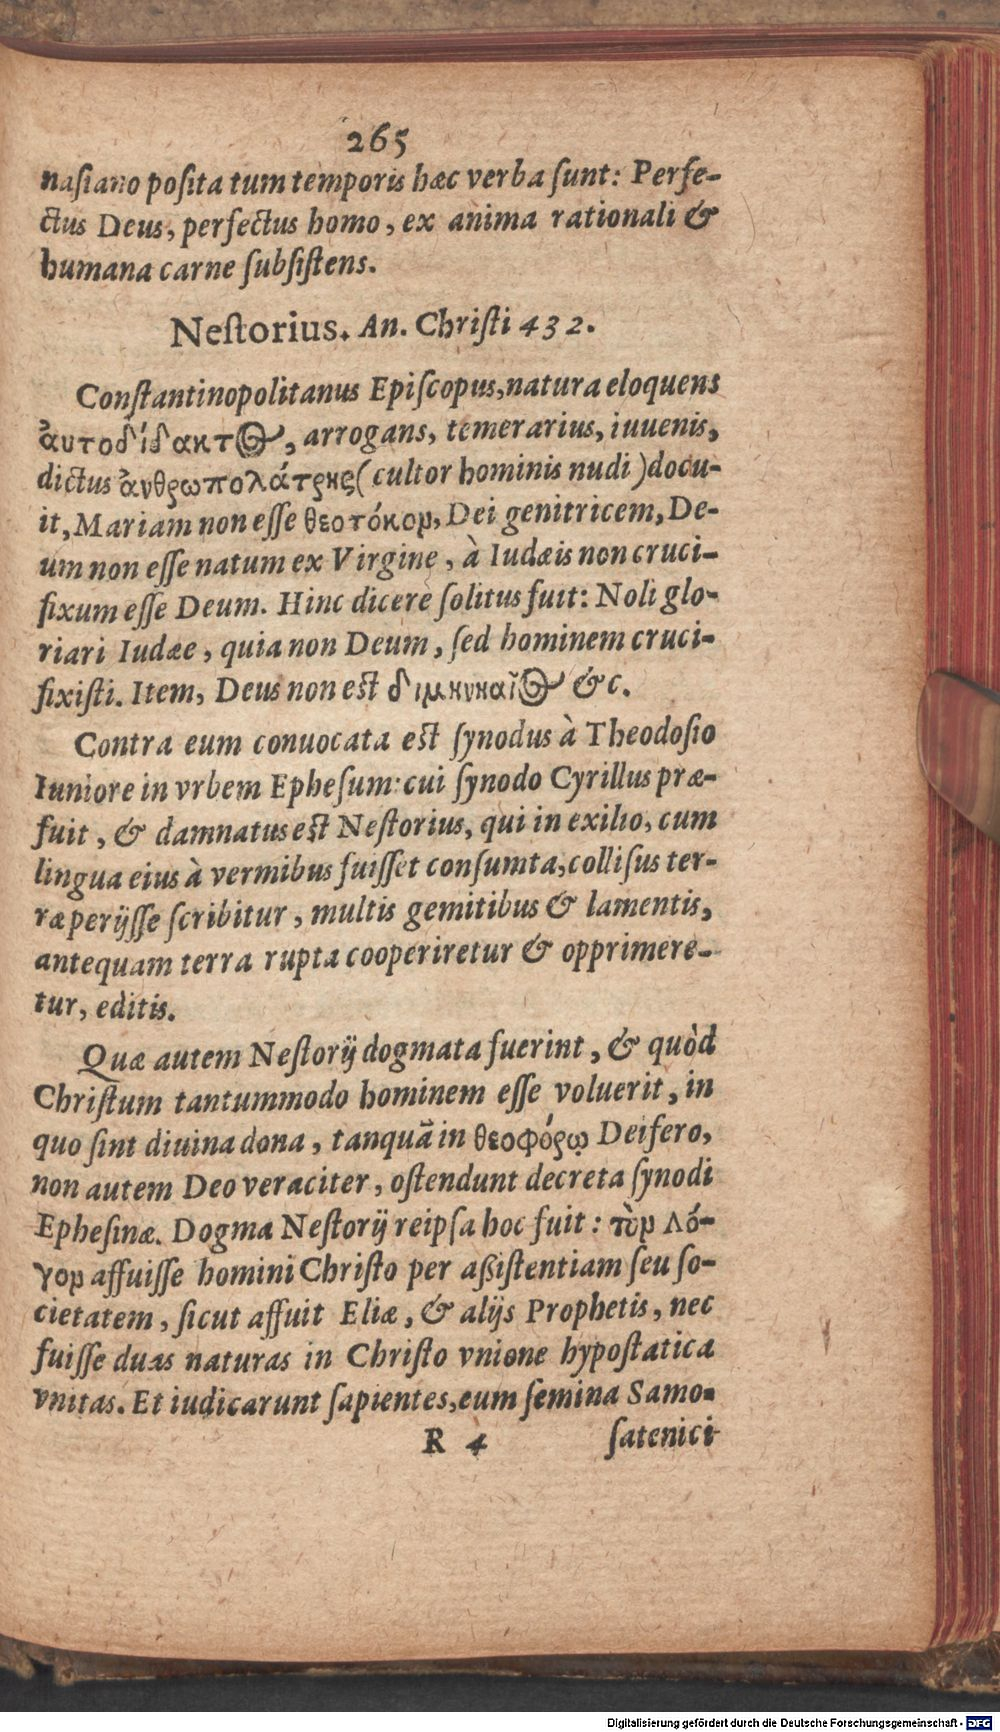 265
nasiano posita tum temporis hæc verba sunt: Perfe-
ctus Deus, perfectus homo, ex anima rationali &
humana carne subsistens.
Nestorius. An. Christi 432.
Constantinopolitanus Episcopus, natura eloquens
ἀυτοδίδακτος, arrogans, temerarius, iuuenis,
dictus ἀνθρωπολάτρης (cultor hominis nudi) docu-
it, Mariam non esse θεοτόκον, Dei genitricem, De-
um non esse natum ex Virgine, à Iudæis non cruci-
fixum esse Deum. Hinc dicere solitus fuit: Noli glo-
riari Iudæe, quia non Deum, sed hominem cruci-
fixisti. Item, Deus non est διμηνιαῖος &c.
Contra eum conuocata est synodus à Theodosio
Iuniore in vrbem Ephesum: cui synodo Cyrillus præ-
fuit, & damnatus est Nestorius, qui in exilio, cum
lingua eius à vermibus fuisset consumta, collisus ter-
ræ perijsse scribitur, multis gemitibus & lamentis,
antequam terra rupta cooperiretur & opprimere-
tur, editis.
Quæ autem Nestorij dogmata fuerint, & quòd
Christum tantummodo hominem esse voluerit, in
quo sint diuina dona, tanquā in θεοφόρῳ Deifero,
non autem Deo veraciter, ostendunt decreta synodi
Ephesinæ. Dogma Nestorij reipsa hoc fuit: τὸν Λό-
γον affuisse homini Christo per aßistentiam seu so-
cietatem, sicut affuit Eliæ, & alijs Prophetis, nec
fuisse duas naturas in Christo vnione hypostatica
vnitas. Et iudicarunt sapientes, eum semina Samo-
R 4 satenici
Digitalisierung gefördert durch die Deutsche Forschungsgemeinschaft - DFG